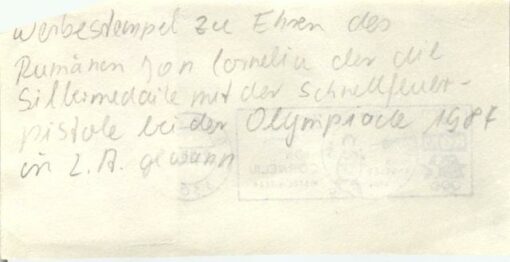 Werbestempel zu Ehren des
Rumänen Jon Corneliu der die
Silbermedaile mit der Schnellfeuer-
pistole bei der Olympiade 1984
in L.A. gewann